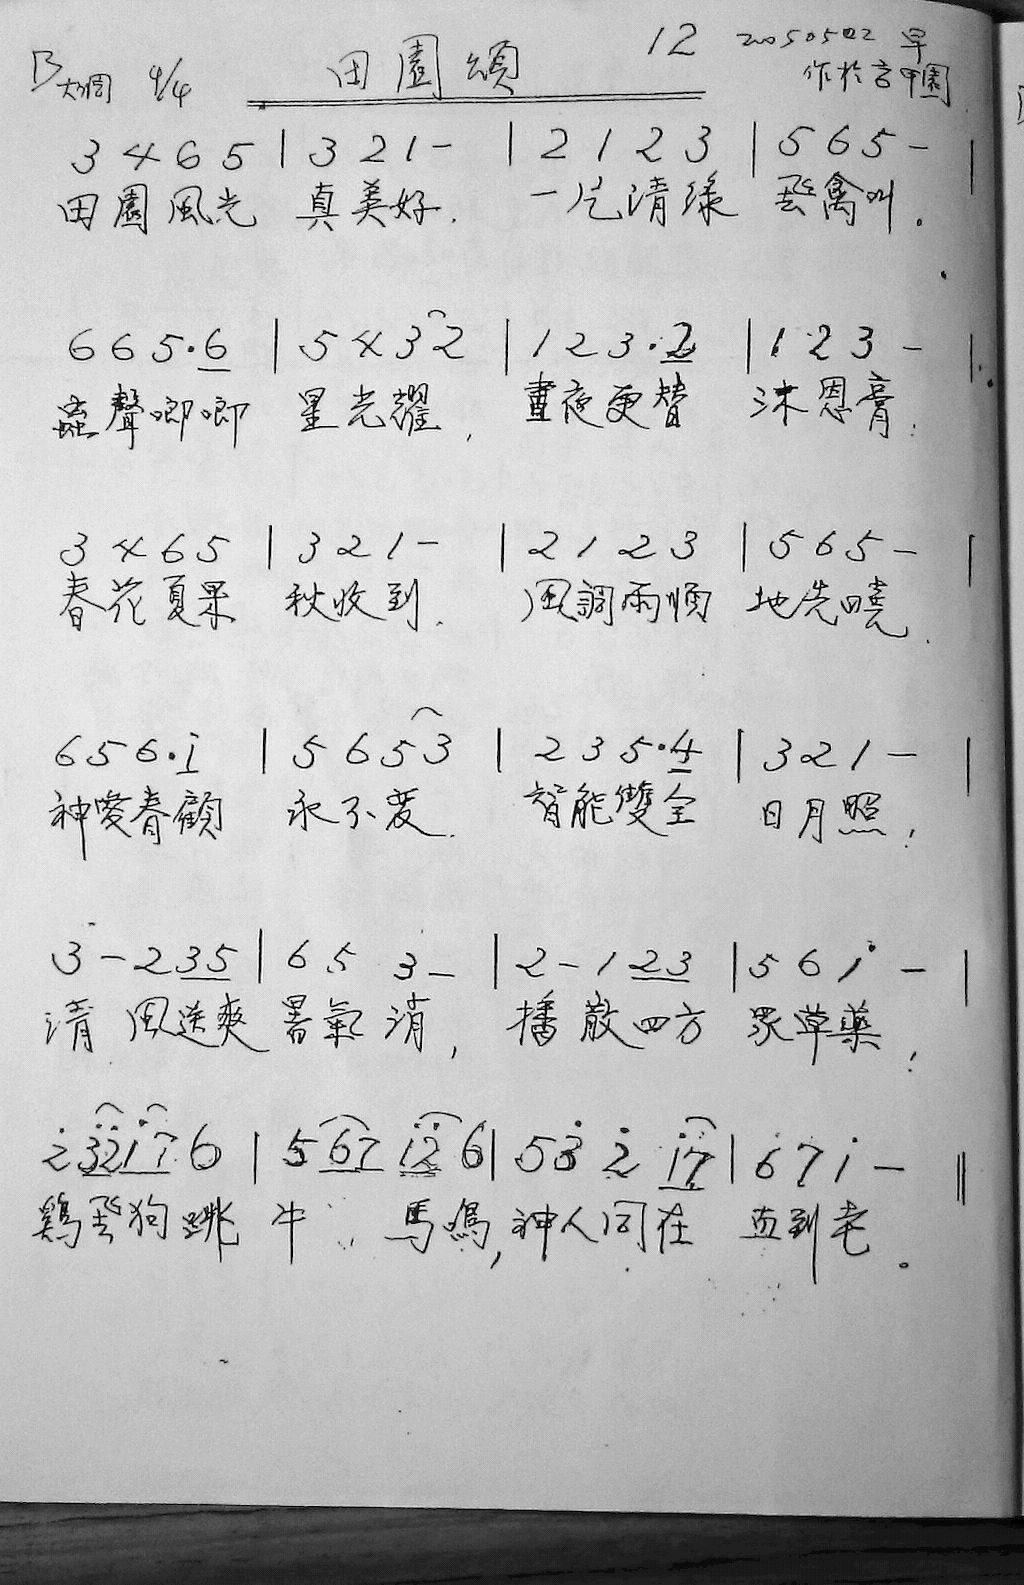 B大調 4/4 田園頌 12 20050502 早
作於言甲園
3 4 6 5 | 3 2 1 - | 2 1 2 3 | 5 6 5 - |
田園風光 真美好. 一片清綠 飛禽叫。
6 6 5·6 | 5 4 3 2 | 1 2 3·2 | 1 2 3 - |
蟲聲唧唧 星光耀, 晝夜更替 沐恩膏.
3 4 6 5 | 3 2 1 - | 2 1 2 3 | 5 6 5 - |
春花夏果 秋收到. 風調雨順 地先曉.
6 5 6·i | 5 6 5 3 | 2 3 5·4 | 3 2 1 - |
神愛眷顧 永不變. 智能雙全 日月照,
3 - 2 3 5 | 6 5 3 - | 2 - 1 2 3 | 5 6 i - |
清 風送爽 暑氣 消, 播 散四方 眾草藥,
2 3 2 1 7 6 | 5 6 7 i 2 6 | 5 3 2 i 7 | 6 7 i - ‖
鷄飛狗跳 牛 馬鳴, 神人同在 直到老。